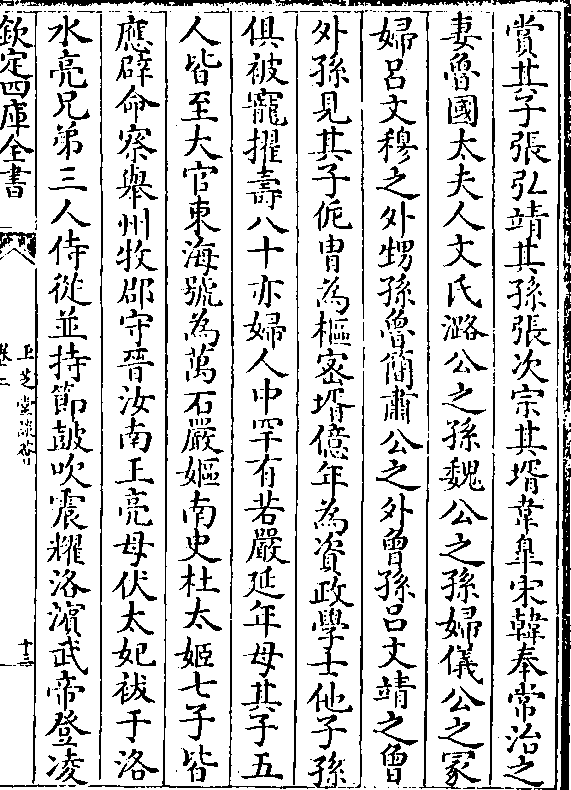 賞其子張弘靖其孫張次宗其壻韋臯宋韓奉常治之
妻魯國太夫人文氏潞公之孫魏公之孫婦儀公之冢
婦吕文穆之外甥孫魯簡肅公之外曽孫吕文靖之曽
外孫見其子侂胄為樞宻壻億年為資政學士他子孫
俱被寵擢壽八十亦婦人中罕有若嚴延年母其子五
人皆至大官東海號為萬石嚴嫗南史杜太姬七子皆
應辟命察舉州牧郡守晉汝南王亮母伏太妃祓于洛
水亮兄弟三人侍從並持節鼓吹震耀洛濵武帝登凌
欽定四庫全書
玉芝堂談薈
卷二
十三